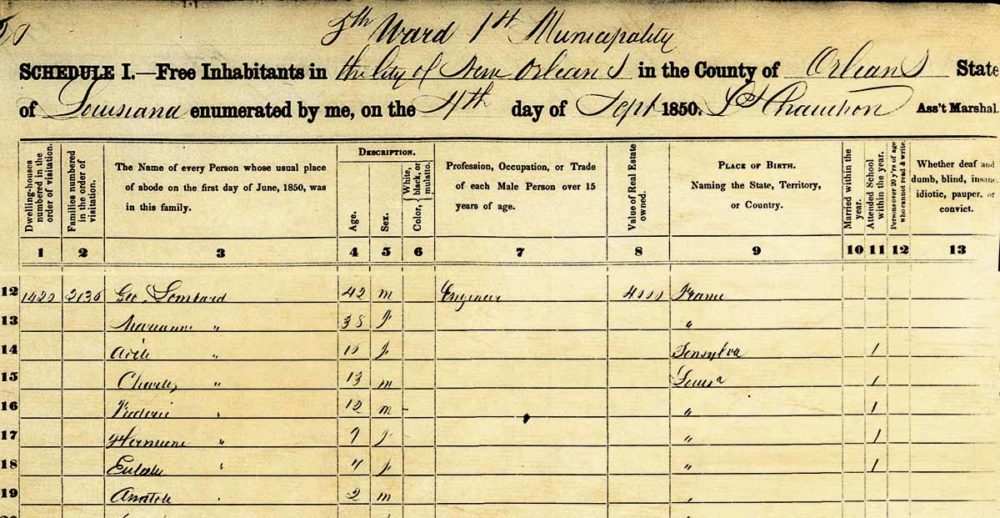 5th Ward 1st Municipality
SCHEDULE I.—Free Inhabitants in the City of New Orleans in the County of Orleans State
of Louisiana enumerated by me, on the 4th day of Sept 1850. Ass't Marshal.
Dwelling-houses numbered in the order of visitation.
Families numbered in the order of visitation.
The Name of every Person whose usual place of abode on the first day of June, 1850, was in this family.
DESCRIPTION.
Age.
Sex.
Color, White, black, or mulatto.
Profession, Occupation, or Trade of each Male Person over 15 years of age.
Value of Real Estate owned.
PLACE OF BIRTH. Naming the State, Territory, or Country.
Married within the year.
Attended School within the year.
Persons over 20 y'rs of age who cannot read & write.
Whether deaf and dumb, blind, insane, idiotic, pauper, or convict.
1 2 3 4 5 6 7 8 9 10 11 12 13
12 1420 Geo. Lombard 42 m Engineer
13 " 38 f "
14 " f 1
15 Charles " 13 m 1
16 Frederic " 12 m - " 1
17 " 7 f " 1
18 " 4 f " 1
19 2 m "